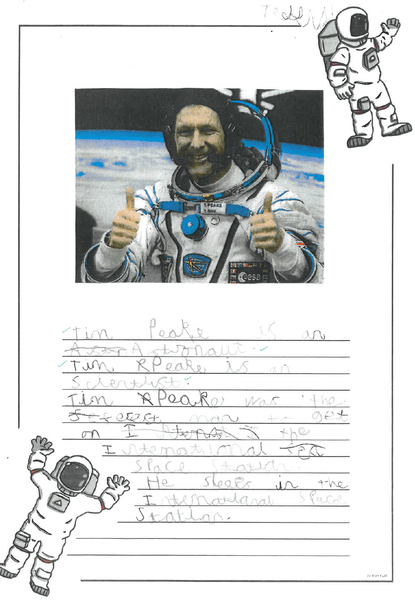 T.PEAKE
esa
Tim Peake is an
Astronaut.
Tim Peake is an
Scientist.
Tim Peake was the
man to get
on the
International
Space Station
He sleeps in the
International Space
Station.